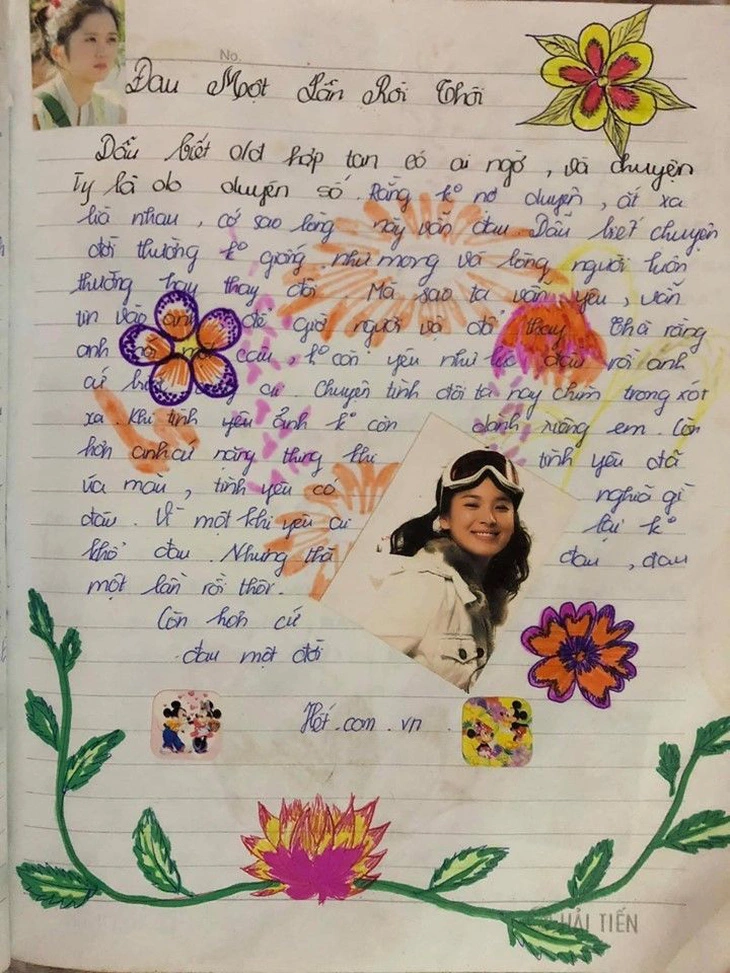 No.
Đau Một Lần Rồi Thôi
Dẫu biết old hợp tan có ai ngờ, và chuyện
Ty là do duyên số. Rằng k° nợ duyên, ắt xa
lìa nhau, cớ sao lòng này vẫn đau. Dẫu biết chuyện
đời thường k° giống như mong và lòng người luôn
thường hay thay đổi. Mà sao ta vẫn yêu, vẫn
tin vào anh để giờ người vội đổi thay. Thà rằng
anh nói một câu, k° còn yêu như lúc đầu rồi anh
cứ cu. Chuyện tình đôi ta nay chìm trong xót
xa. Khi tình yêu ảnh k° còn dành riêng em. Còn
hơn anh cứ nặng thung khi tình yêu đã
úa màu, tình yêu có nghĩa gì
đâu. Vì một khi yêu ai lại k°
khổ đau. Nhưng thà đau, đau
một lần rồi thôi.
Còn hơn cứ
đau một đời
Hết.com.vn.
HẢI TIẾN